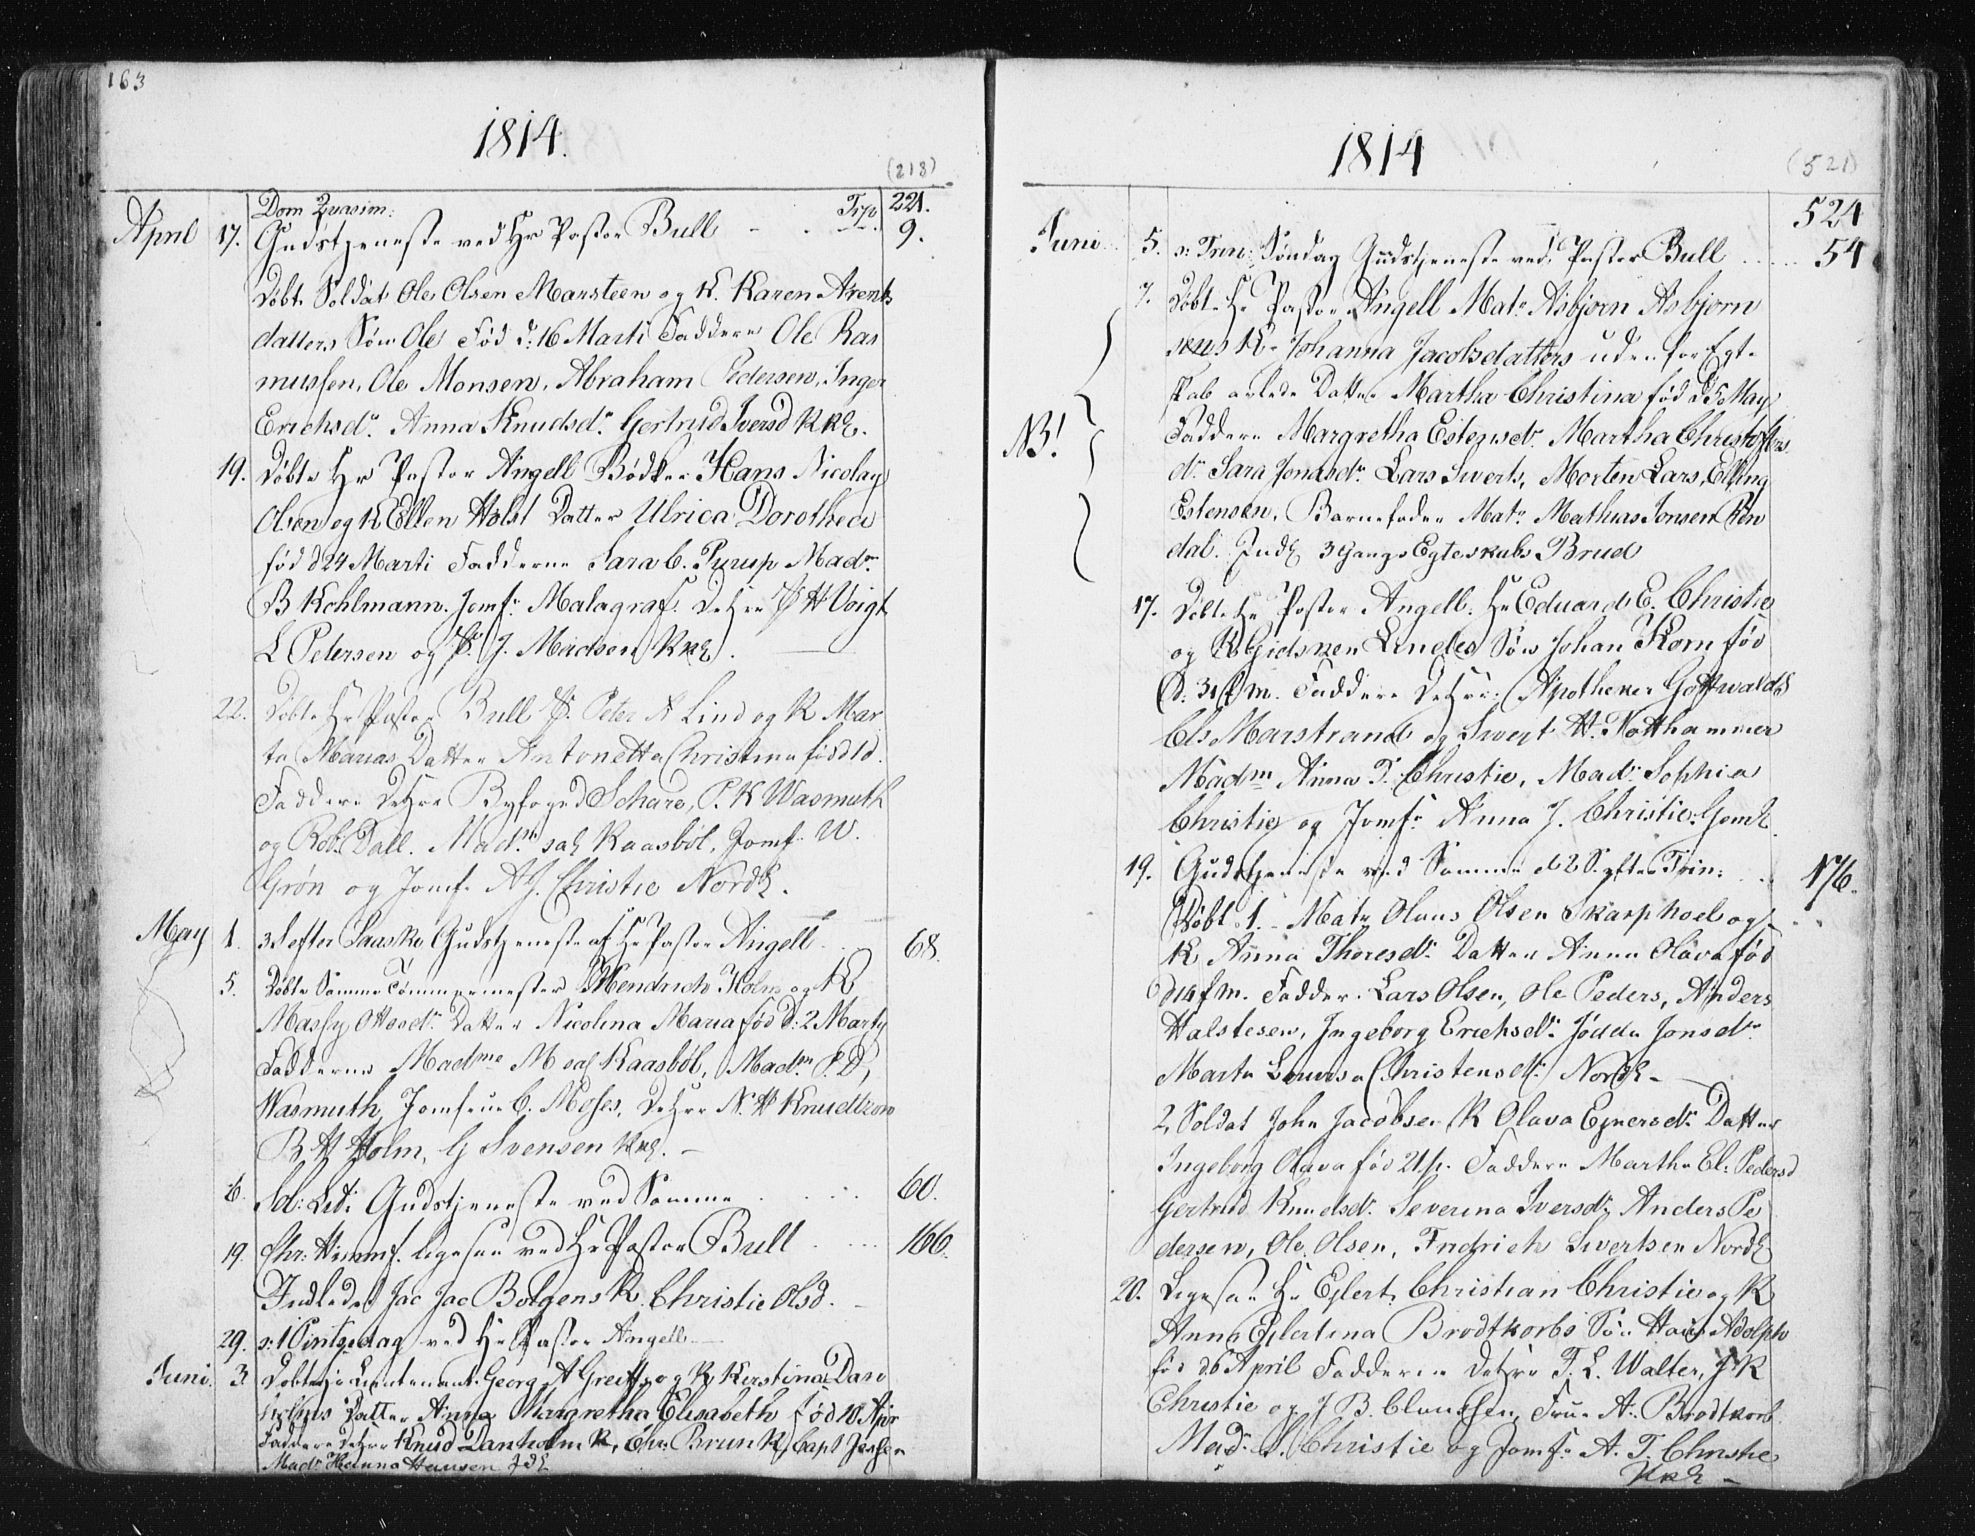 163
1814.
(218)
Dom Quasim: Trp 221.
April 17. Gudstjeneste ved Hr Pastor Bull - . . 9.
Døbt Soldat Ole Olsen Marsteen og K. Karen Arents
datters Søn Ole Fød d: 16 Marti Faddere Ole Ras
mussen, Ole Monsen, Abraham Pedersen, Inger
Erichsdr. Anna Knudsdr. Gertrud Iversd
19. Døbte Hr Pastor Angell Bødker Hans Nicolay
Olsen og K Ellen Holst Datter Ulrica Dorothea
fød d 24 Marti Fadderne Sara C. Pyrup Madm
B Kohlmann. Jomfr Malagraf. DeHrr H Voigt
L Petersen og J. Madsen
22. Døbte Hr Pastor Bull Peter A Lind og K Mar
ta Marias Datter Antonetta Christina fød d 10.
Faddere DeHrr Byfoged Schare, P. K Wasmuth
og Rob. Dall. Madm sal Kaasbøl, Jomf. W.
Grøn og Jomfr A J. Christie Nordl.
May 1. 3 S efter Paaske Gudstjeneste af Hr Pastor Angell . . 68.
5. Døbte Samme Tømmermester Hendrich Holm og K
Massy Ottosdr. Datter Nicolina Maria fød d: 2 Marty
Fadderne Madme M sal Kaasbøl, Madm P. D,
Wasmuth, Jomfrue C. Moses, DeHrr N. H Knudtzon
B H Holm, G Svensen
6. Gudstjeneste ved Samme . . . . 60.
19. Chr: Himmf. ligesaa ved Hr Pastor Bull . . . 166.
Indledet Jac Jac Bolgens K. Christie Olsd.
29. s: 1 Pintsedag ved Hr Pastor Angell
Juni. 3 Døbte Lieutenant Georg A Greiff og K Kerstina Dan
Datter Anna Margretha Elisabeth fød 10 Apr
Faddere DeHrr Knud Danholm K, Chr. Brun K, Capt Jessen
Madr Hanna Hansen
1814
(521)
524
Juni 5. s: Trin: Søndag Gudstjeneste ved Pastor Bull . . . . 54
7. Døbte Hr Pastor Angell Matr Asbjørn Asbjørn
sens K. Johanna Jacobsdatters uden for Egte
skab avlede Datter Martha Christina fød d 5 May
NB! Faddere Margretha Estensdr. Martha Christoffers
dr. Sara Jonasdr. Lars Siverts, Morten Lars, Elling
Estensen, Barnefader Matr. Mathias Jonsen Ren
dal. 3 Gangs Egteskabs Brud
17. Døbte Hr Pastor Angell. Hr Eduard E. Christie
og K Gidsken Lindes Søn Johan Korn fød
d. 31 f. m. Faddere DeHrr: Apotheker Gottwaldt
Cls Marstrand og Sivert H. Notthammer
Madm Anna T. Christie, Madr. Sophia
Christie og Jomfr Anna J. Christie.
19. Gudstjeneste ved Samme d 2 S. efter Trin: . . 176.
Døbt 1. Matr Olaus Olsen Skarphoel og
K Anna Thoresdr. Datter Anna Olava fød
d 14 f m. Fadder. Lars Olsen, Ole Peders, Anders
Halstesen, Ingeborg Erichsdr. Jødda Jonsdr.
Marta Lovisa Christensdr. Nordl -
2, Soldat John Jacobsen K Olava Ejnersdr. Datter
Ingeborg Olava fød 21 Faddere Martha El. Pedersd
Gertrud Knudsdr. Severina Iversdr, Anders Pe
dersen, Ole Olsen, Fridrich Sivertsen Nordl
20. Ligesaa Hr Ejlert Christian Christie og K
Anna Ejlertina Brodtkorbs Søn Hans Adolph
fød d 6 April Fadderne DeHrr T. L. Walter, J K
Christie og J B. Claussen, Frue A. Brodtkorb.
Madr. S. Christie og Jomfr A. T. Christie